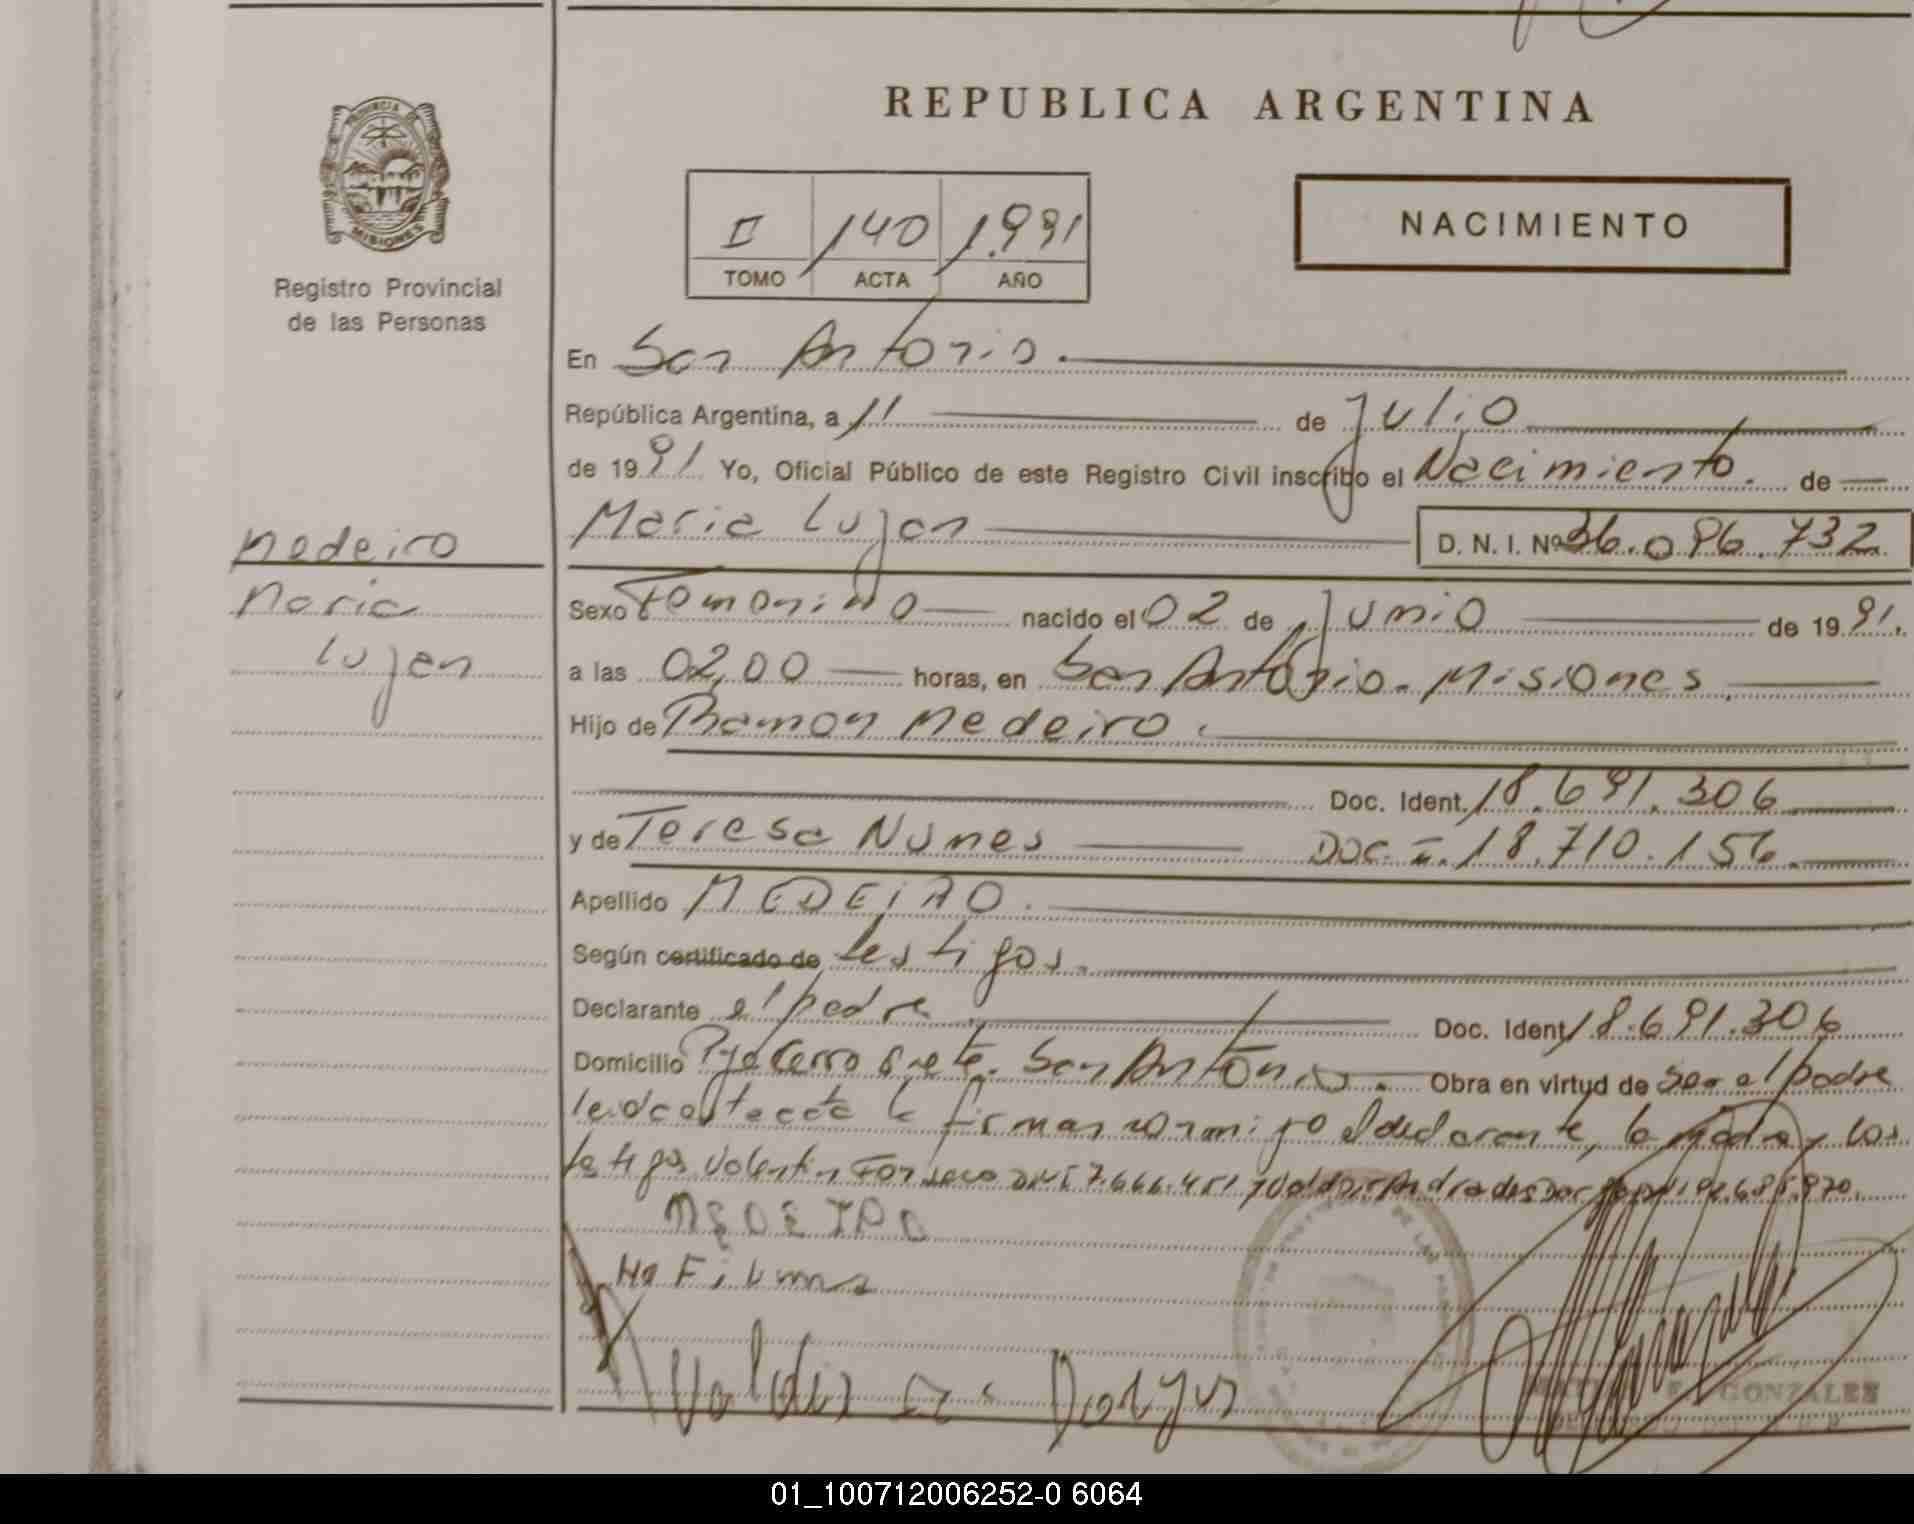 REPUBLICA ARGENTINA
PROVINCIA DE
MISIONES
Registro Provincial
de las Personas
II 140 1.991
TOMO ACTA AÑO
NACIMIENTO
En San Antonio.
República Argentina, a 11 de Julio
de 1991 Yo, Oficial Público de este Registro Civil inscribo el Nacimiento. de
Maria Lujan D. N. I. Nº 36.096.732
Medeiro
Maria
Lujan
Sexo Femenino nacido el 02 de Junio de 1991.
a las 02,00 horas, en San Antonio. Misiones
Hijo de Ramon Medeiro.
Doc. Ident. 18.691.306
y de Teresa Nunes Doc. n. 18.710.156.
Apellido MEDEIRO.
Según certificado de testigos.
Declarante el padre Doc. Ident 18.691.306
Domicilio San Antonio. Obra en virtud de ser el padre
leida el acta la firman conmigo el declarante, la madre y los
testigos Valentin
MEDEIRO
No Firma
GONZALEZ
01_100712006252-0 6064